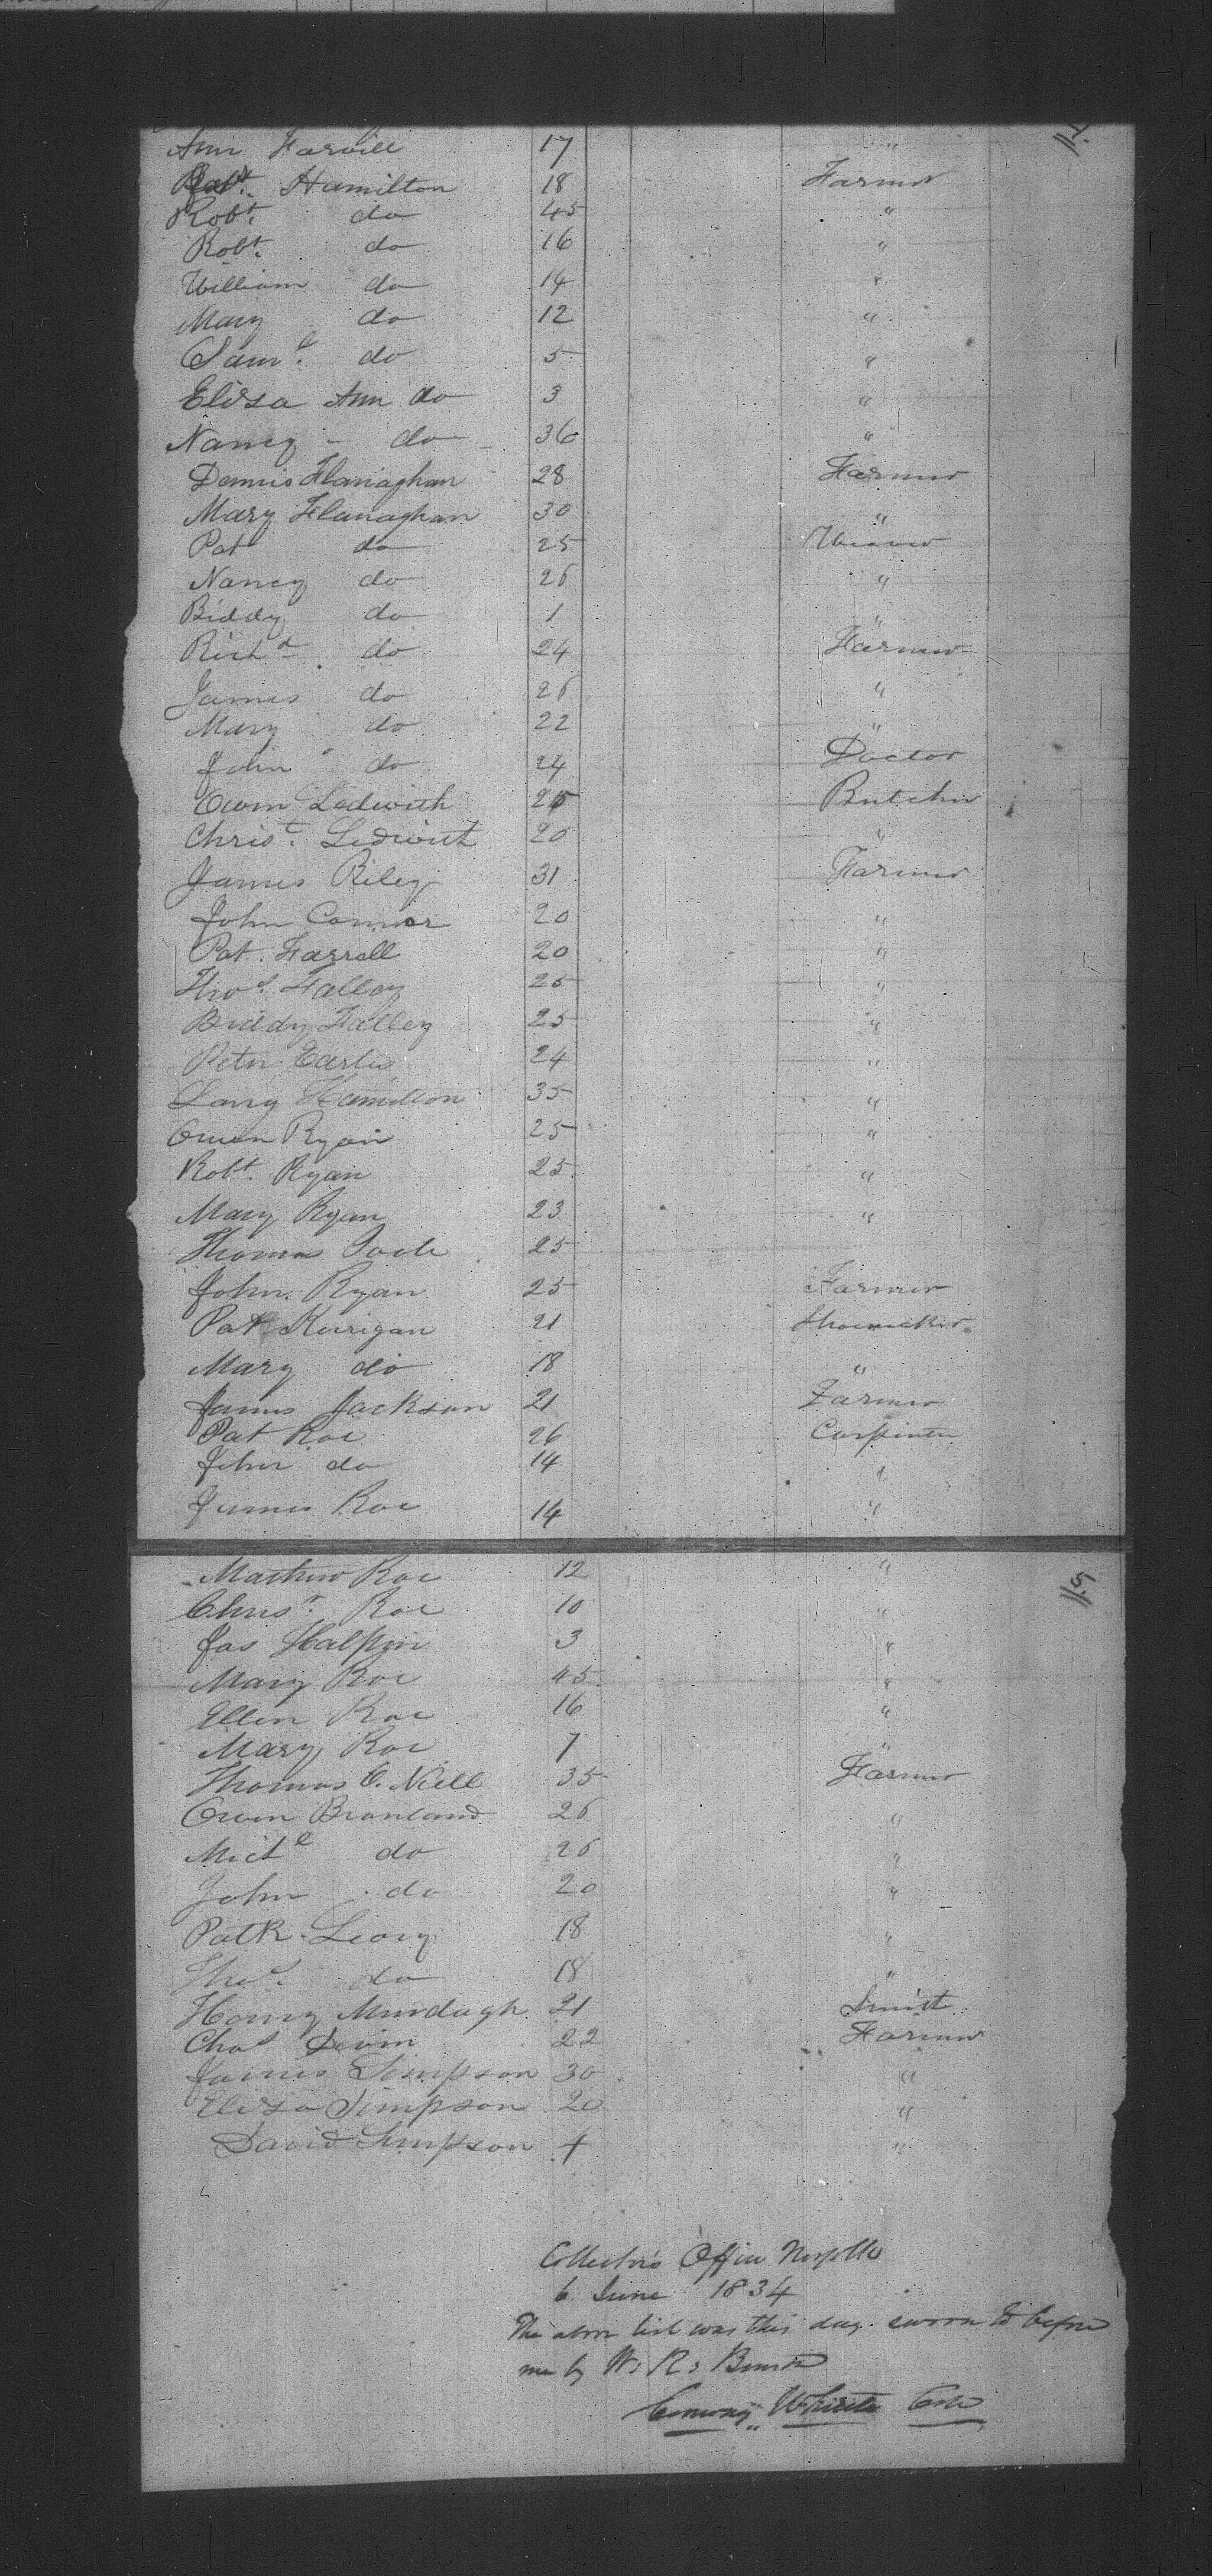 Ann Farrill 17 "
114
Robt. Hamilton 18 Farmer
Robt. do 45 "
Robt. do 16 "
William do 14 "
Mary do 12 "
Saml. do 5 "
Eliza Ann do 3 "
Nancy - do - 36 "
Dennis Flanaghan 28 Farmer
Mary Flanaghan 30 "
Pat do 25
Nancy do 26 "
Biddy do 1 "
Richd do 24 Farmer
James do 26 "
Mary do 22 "
John do 24 Doctor
Owen Ledwith 25 Butcher
Christ. Ledwith 20 "
James Riley 31 Farmer
John Connor 20 "
Pat. Farrell 20 "
Thos. Falley 25 "
Biddy Falley 25 "
Peter Earlis 24 "
Larry Hamilton 35 "
Owen Ryan 25 "
Robt. Ryan 25 "
Mary Ryan 23 "
Thomas 25
John. Ryan 25 Farmer
Pat Kerrigan 21 Shoemaker
Mary do 18 "
James Jackson 21 Farmer
Pat Roe 26 Carpenter
John do 14 "
James Roe 14 "
Mathew Roe 12 "
115
Chrisr. Roe 10 "
Jas Halpin 3 "
Mary Roe 45 "
Ellen Roe 16 "
Mary Roe 7 "
Thomas O. Niell 35 Farmer
Owen Branland 26 "
Michl do 26 "
John do 20 "
Patk. Leary 18 "
Thos. do 18 "
Henry Murdagh 21
Chas Devin 22 Farmer
James Simpson 30 "
Eliza Simpson 20 "
David Simpson + "
Collector's Office Norfolk
6 June 1834
The above list was this day sworn to before
me by W. R. Benson
Conway Whittle Colr